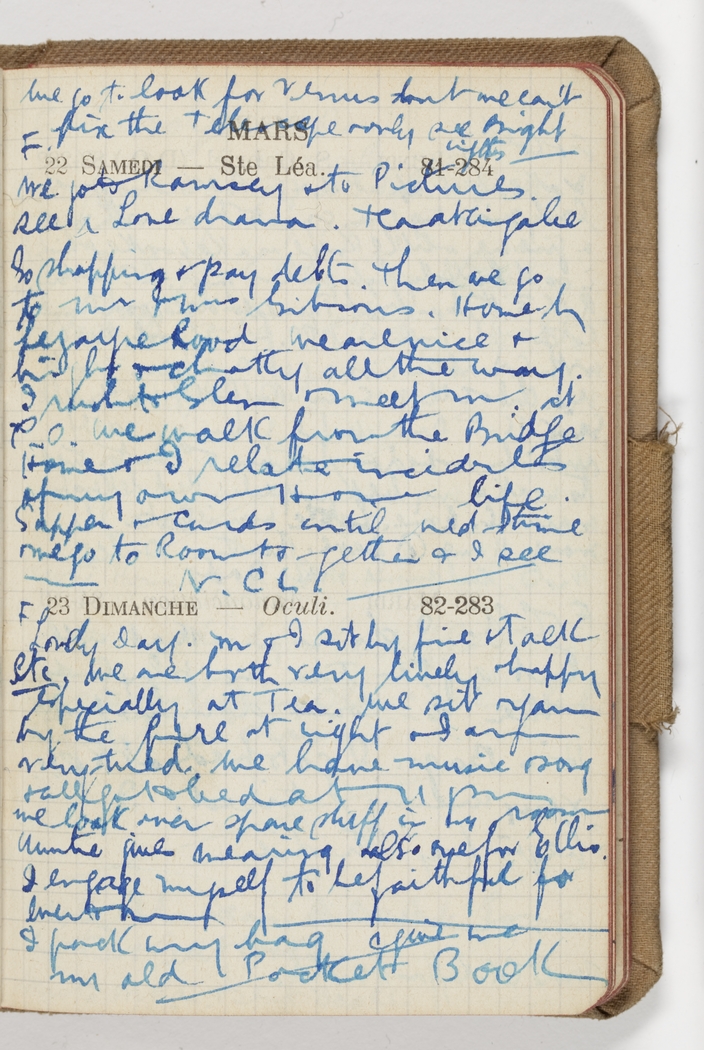 We go to look for Venus but we can't
fix the Telescope only see Bright
MARS
F.
lights
22 SAMEDI — Ste Léa. 81-284
We go to Ramsey & to Pictures.
see a Love drama. +
Do shopping & pay debts. Then we go
to Mr & Mrs Gibsons. Home by
Road we are nice &
bright & chatty all the way.
I to Glen & meet m at
P.O. We walk from the Bridge
Home & I relate incidents
of my own Home life.
Supper & Cards until bed time
we go to Room together & I see
N. C. L.
23 DIMANCHE — Oculi. 82-283
F Lovely Day. m & I sit by fire & talk
etc. We are both very lively & happy
Especially at Tea. We sit again
by the fire at night & I am
very tired. We have music & song
& all get to bed at 11 pm
we look over spare stuff in my room
Auntie gives me a ring also one for Ellis.
I engage myself to be faithful for
ever to
I pack my bag & give m
my old Pocket Book